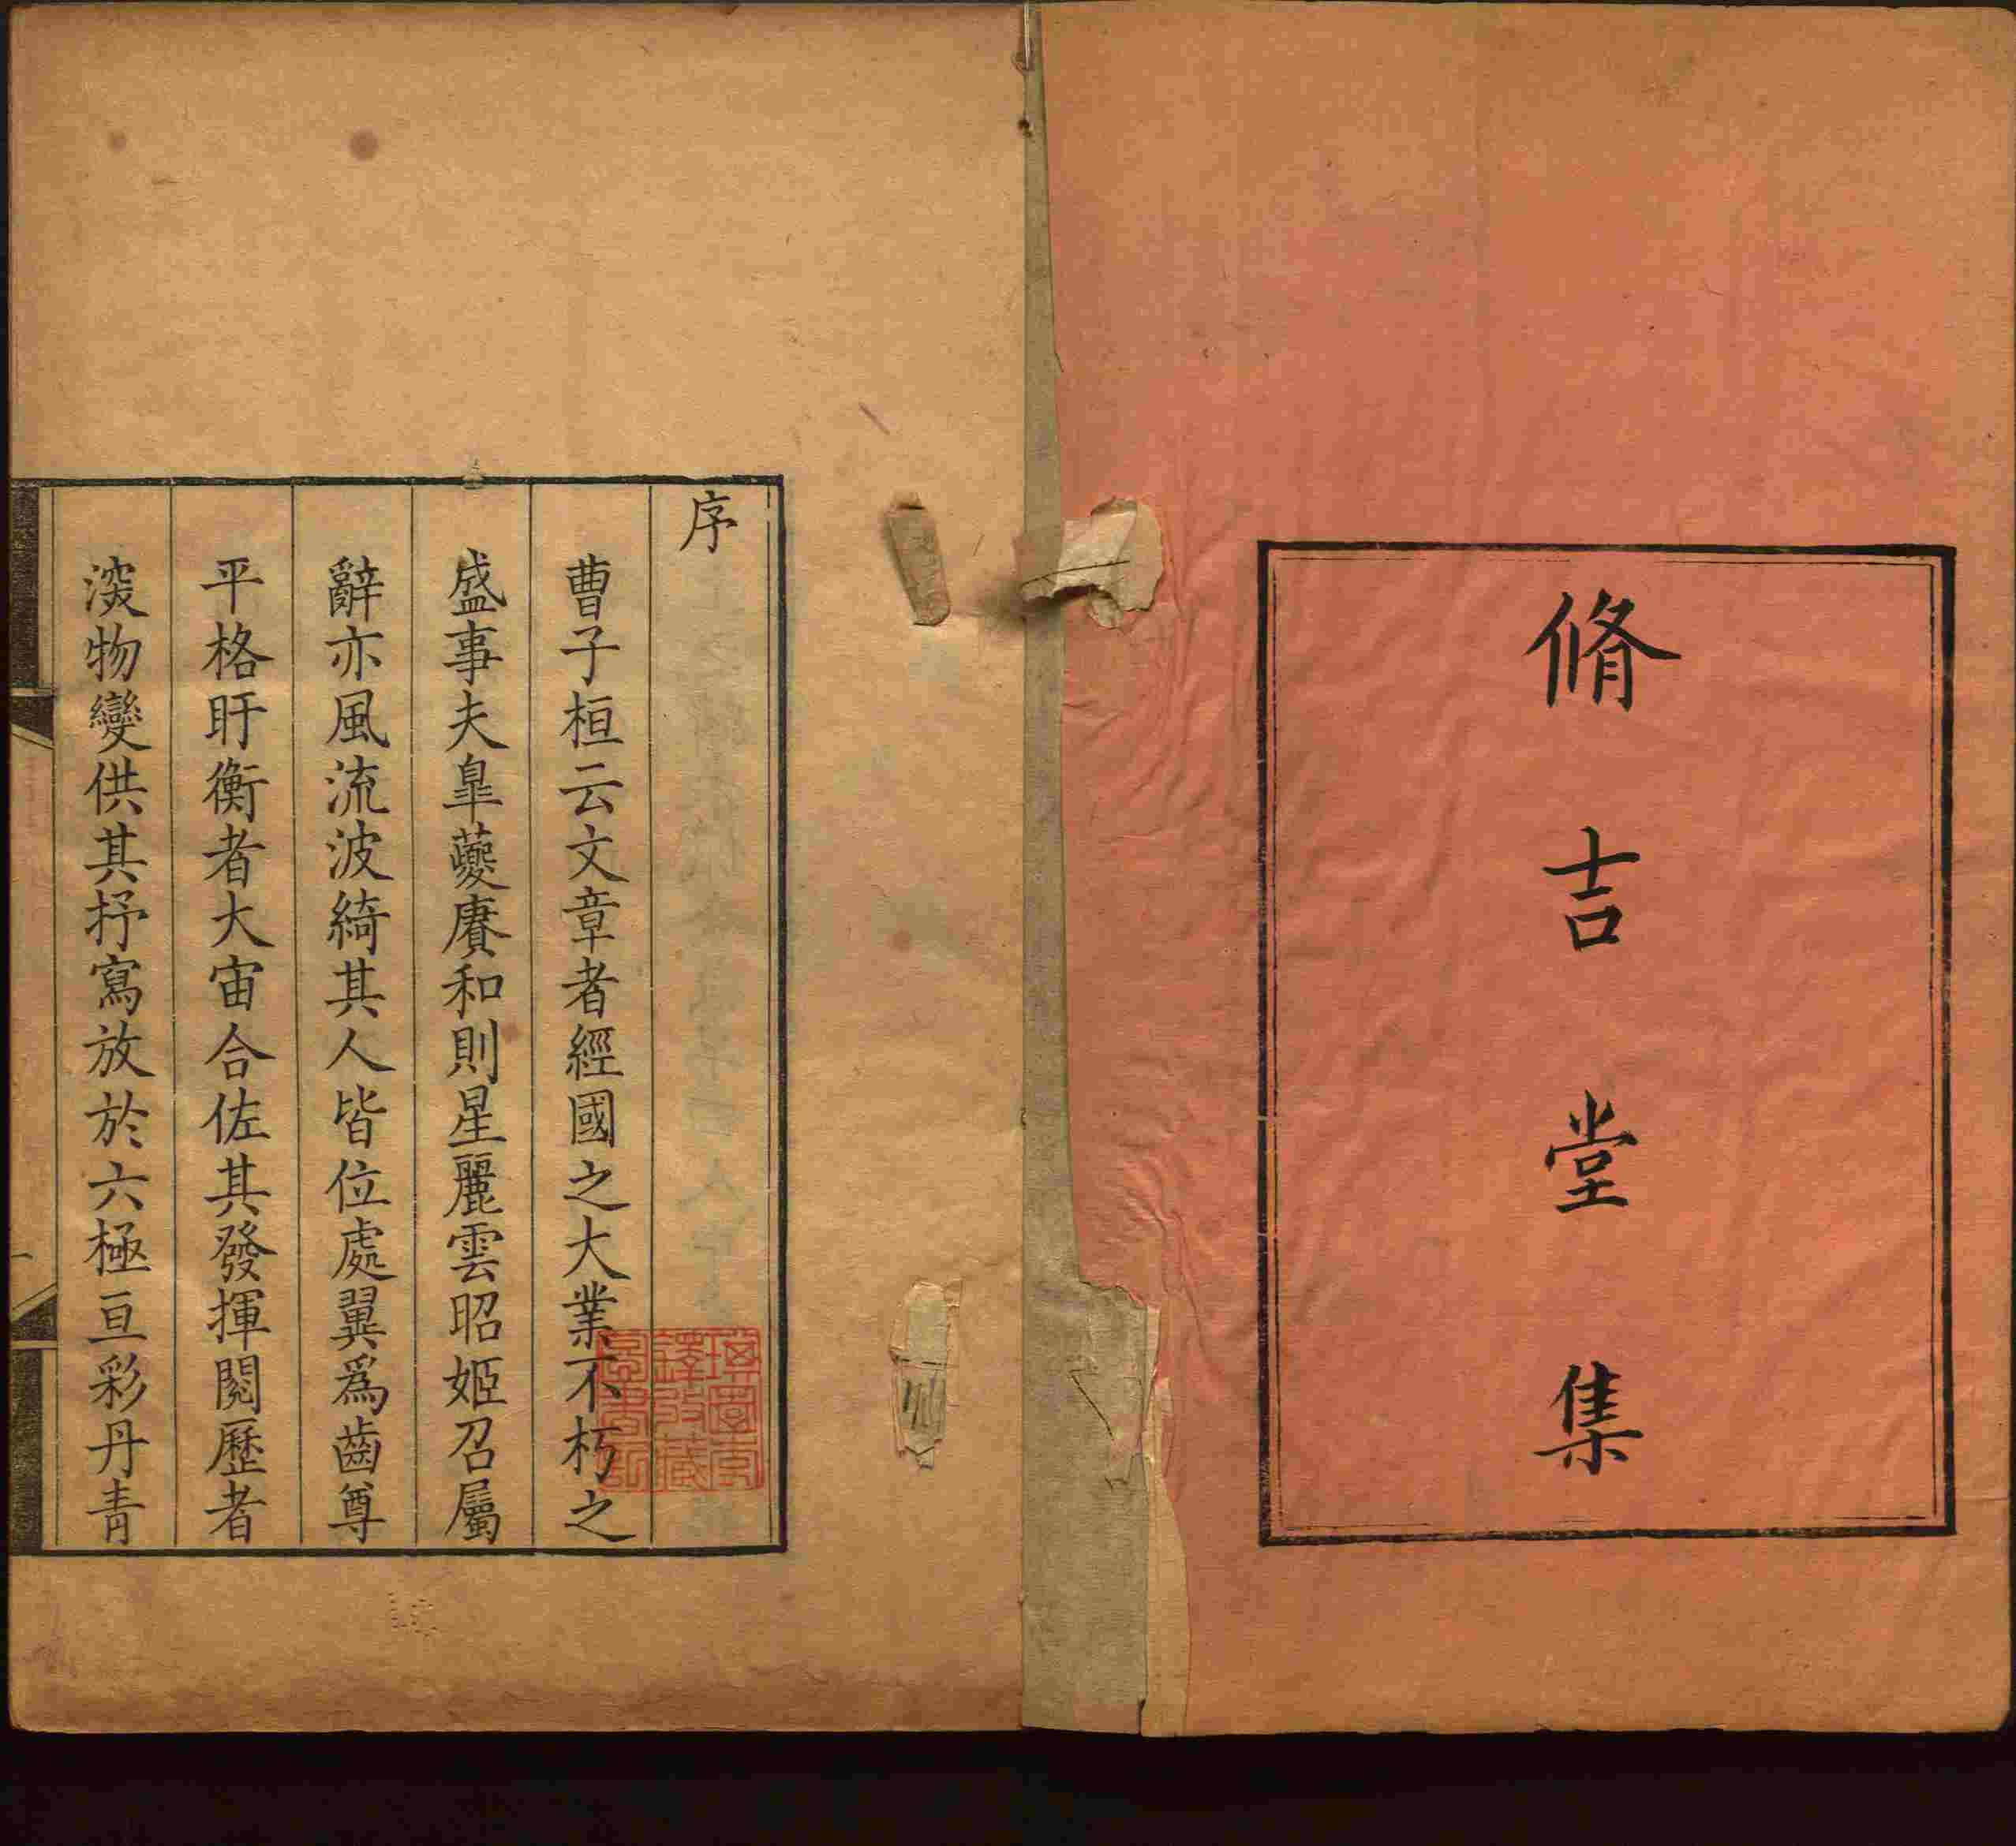 脩吉堂集
序
曹子桓云文章者經國之大業不朽之
盛事夫皐夔賡和則星麗雲昭姬召屬
辭亦風流波綺其人皆位處翼爲齒尊
平格盱衡者大宙合佐其發揮閱歷者
深物變供其抒寫放於六極亘彩丹青
一